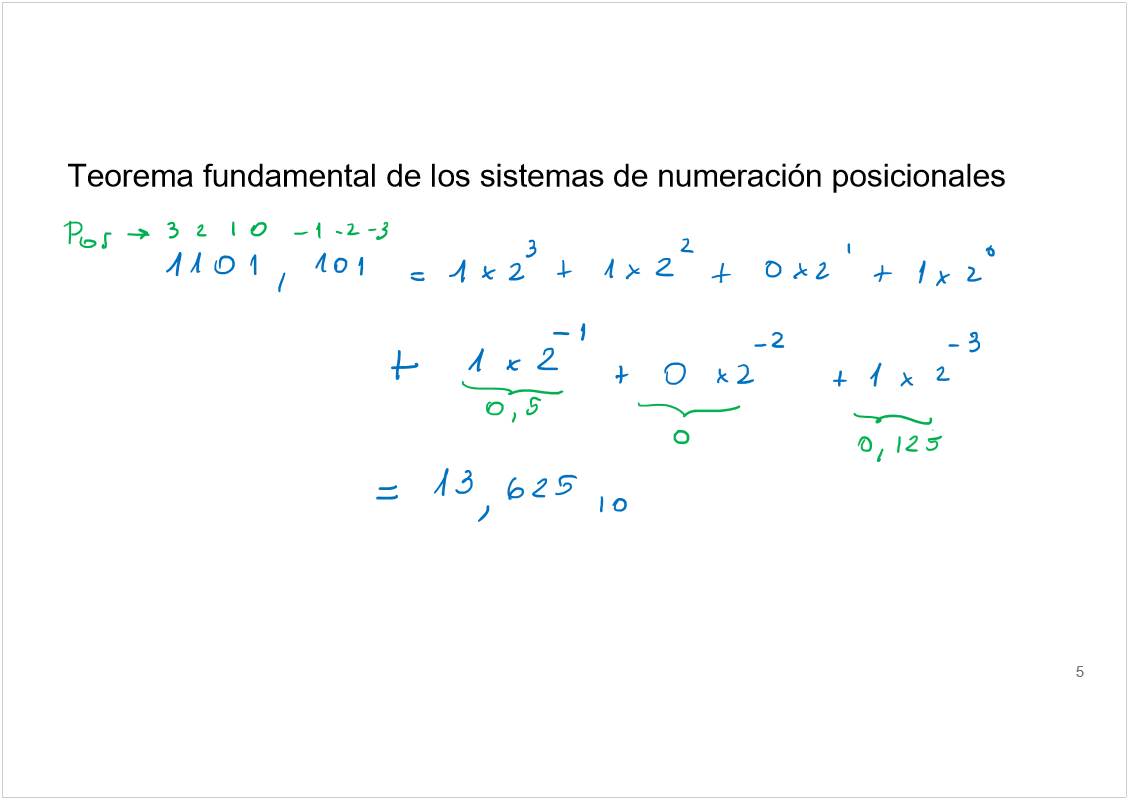 Teorema fundamental de los sistemas de numeración posicionales
Pos → 3 2 1 0 -1 -2 -3
1101, 101 = 1 × 2³ + 1 × 2² + 0 × 2¹ + 1 × 2⁰
+ 1 × 2⁻¹ + 0 × 2⁻² + 1 × 2⁻³
0,5 0 0,125
= 13,625 ₁₀
5